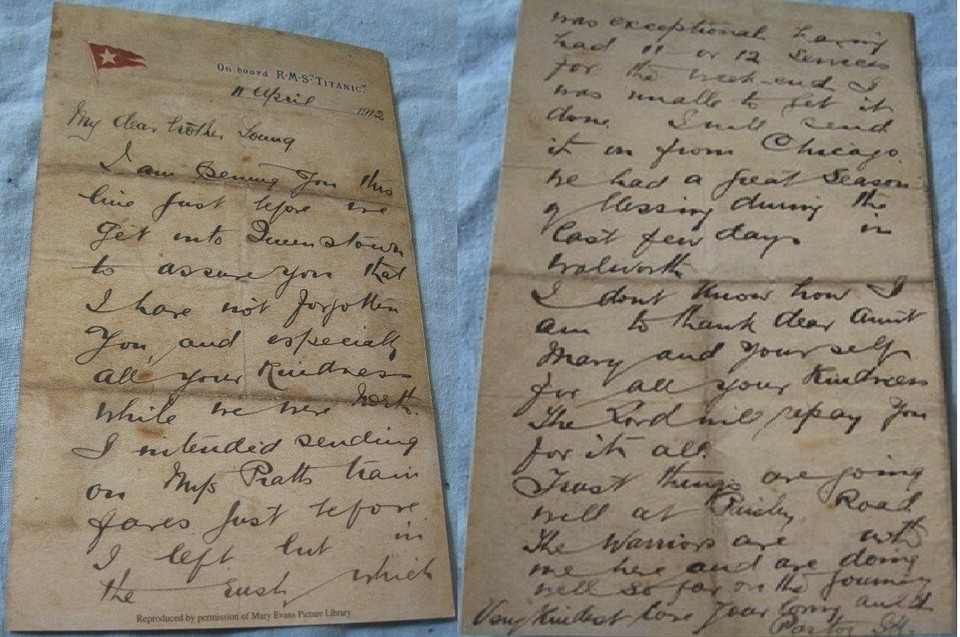 On board R.M.S. "TITANIC".
11 April 1912
My dear brother Young
I am penning you this
line just before we
get into Queenstown
to assure you that
I have not forgotten
You, and especially
all your kindness
while we were North.
I intended sending
on Miss Pratts train
fares just before
I left but in
the rush which
Reproduced by permission of Mary Evans Picture Library
was exceptional having
had 11 or 12 services
for the week-end I
was unable to get it
done. I will send
it on from Chicago.
We had a great season
of blessing during the
last few days in
Walworth
I dont know how I
am to thank dear Aunt
Mary and yourself
for all your kindness
The Lord will repay you
for it all.
Trust things are going
well at Paisley Road
The Warriors are with
me here and are doing
well so far on the journey
Very kindest love your loving auld
Pastor